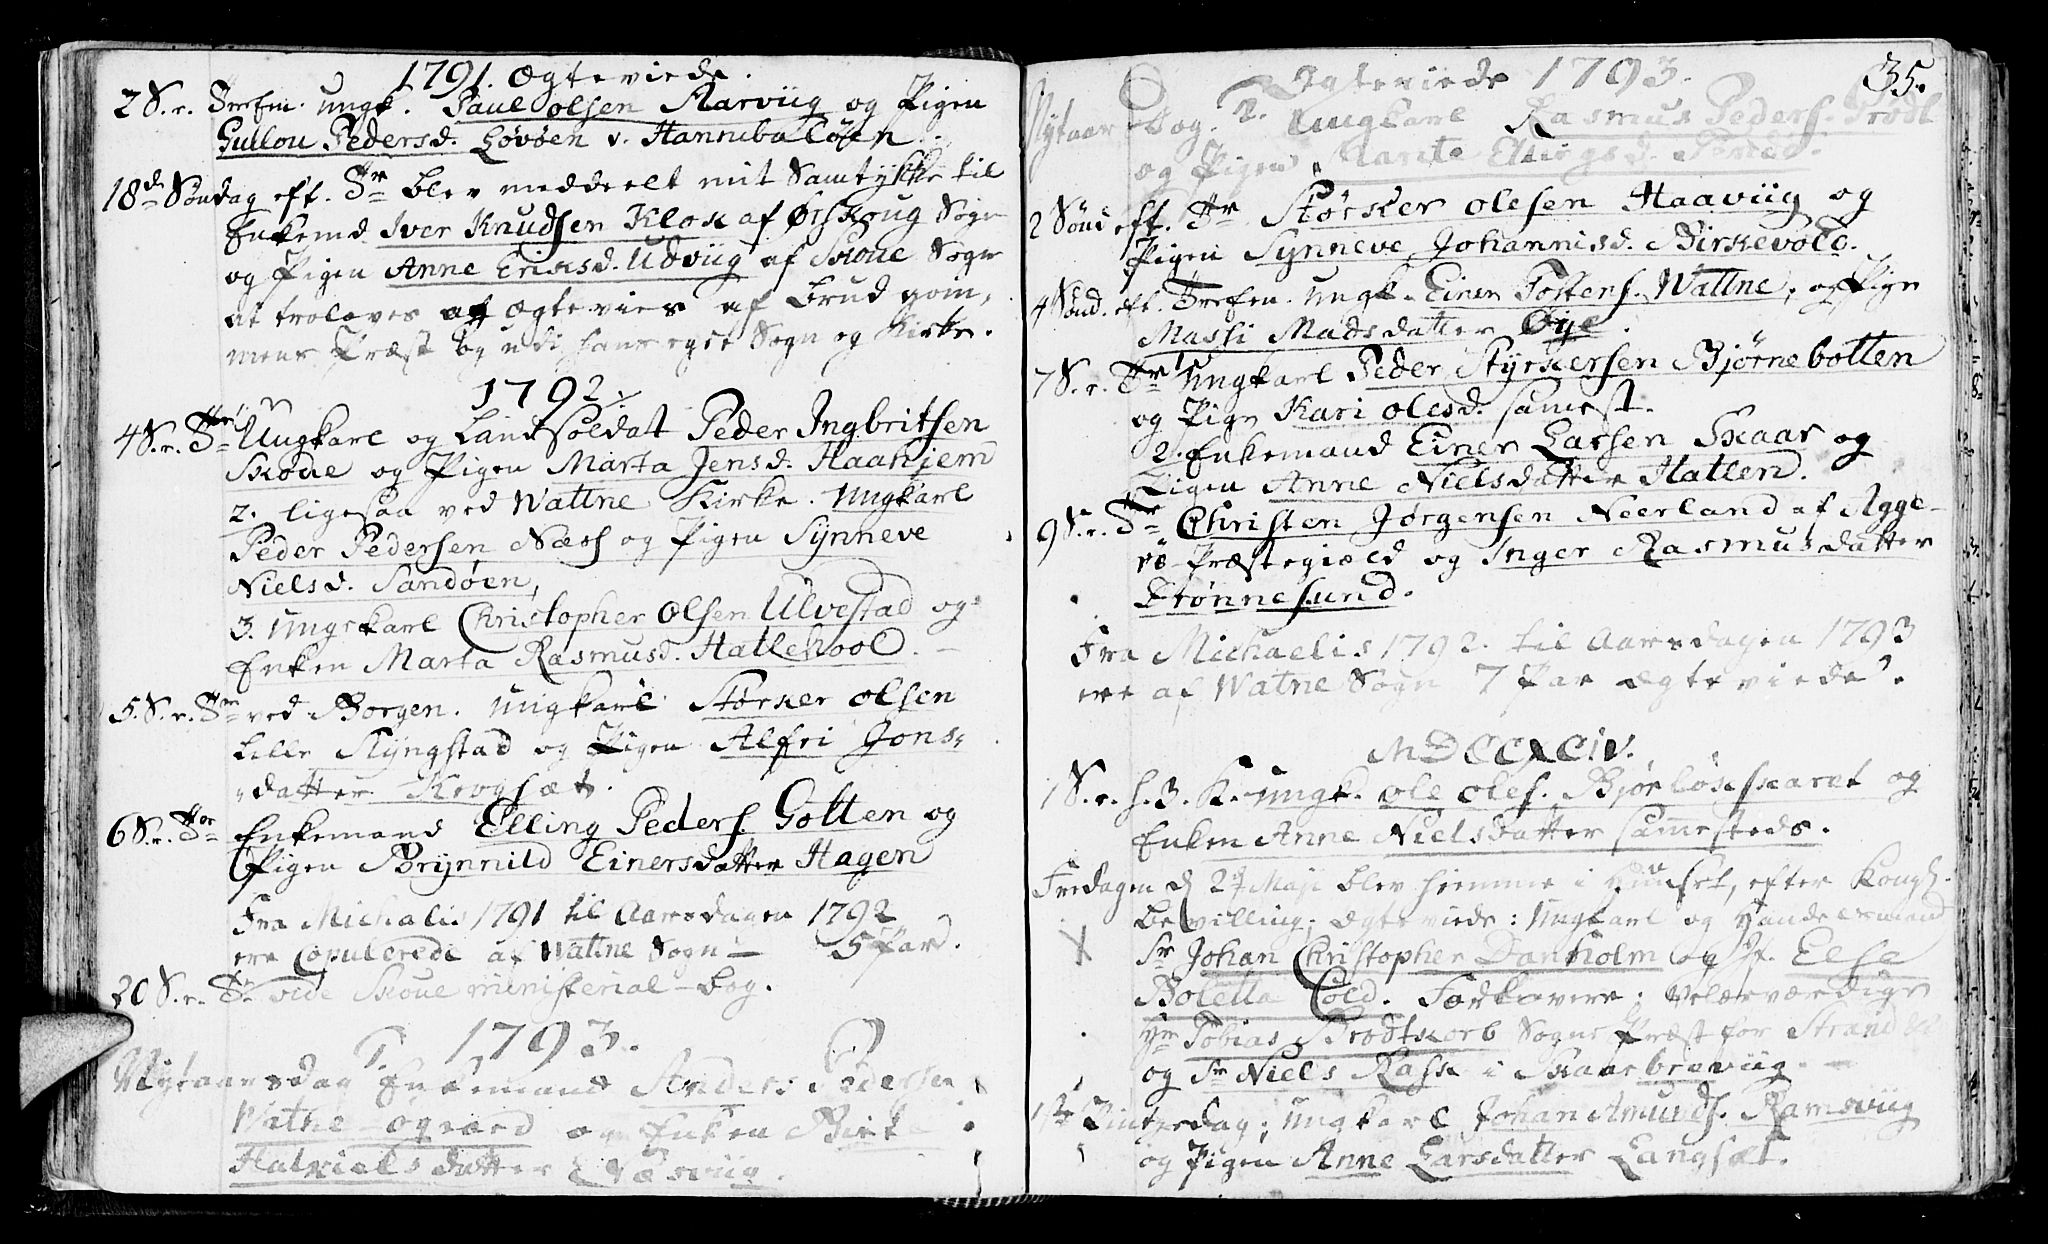 1791. Ægteviede.
2 S. r. Trefen. Ungk. Paul Olsen Aarviig og Pigen
Gullou Pedersd. Løvøen v. Hannibaløen.
18d Søndag eft. Tr blev meddeelt mit Samtykke til
Enkemd Iver Knudsen Klok af Ørskoug Sogn
og Pigen Anne Eriksd. Udviig af Skoue Sogn
at troloves og ægtevies af Brudgom,
mens Præst og udi hans eget Sogn og Kirke.
1792
4 S. r. Tr Ungkarl og Landsoldat Peder Ingbritsen
Skoue og Pigen Marta Jensd. Haahjem
2. ligesaa ved Wattne Kirke. Ungkarl
Peder Pedersen Næss og Pigen Synneve
Nielsd. Sandøen,
3. Ungkarl Christopher Olsen Ulvestad og
Enken Marta Rasmusd. Hatlehool. –
5. S. r. Tr ved Borgen. Ungkarl Størker Olsen
Lille Klyngstad og Pigen Alfri Jons-
datter Krogsæt.
6 S. r. Tr Enkemand Elling Peders. Gotten og
Pigen Brynnild Einersdatter Hagen
Fra Michalis 1791 til Aarsdagen 1792
ere Copulerede af Wattne Sogn – 5 Par.
20 S. r. Tr vide Skoue ministerial-bog.
1793.
Nytaarsdag Enkemand Anders Pedersen
Watne og Enken Birte
datter
35.
Ægteviede 1793.
Nytaars Dog. 2. Ungkarl Rasmus Peders.
og Pigen Marite Ellingsd.
2 Sønd eft. Tr Størker Olesen Haaviig og
Pigen Synneve Johannisd. Birkevold.
4 Sønd. eft. Trefen. Ungk. Einer Postens. Wattne, og Pige
Massi Madsdatter Øye.
7 S. r. Tr Ungkarl Peder Styrkersen Bjørnebotten
og Pige Kari Olesd. samest.
2. Enkemand Einer Larsen Skaar og
Pigen Anne Nielsdatter Hatlen.
9 S. r. Tr Christen Jørgensen Neerland af Agge-
røe Præstegiæld og Inger Rasmusdatter
Drønnesund.
Fra Michaelis 1792. til Aarsdagen 1793
ere af Watne Sogn 7 Par ægteviede.
MDCCXCIV.
1 S. r. h. 3. K. Ungk. Ole Oles. Bjørløkskaret og
Enken Anne Nielsdatter sammesteds.
Fredagen d 2 Maji blev hiemme i Huuset, efter Kongl.
bevilling, ægteviede: Ungkarl og Handelsmand
Sr Johan Christopher Danholm og Jf. Else
Boletta Cold. Forlovere: Velærværdige
Hr Tobias Brodtkorb Sogne Præst for Strand
og Sr Niels Rask i Skaarbreviig. –
1ste Pintzedag, Ungkarl Johan Amunds. Ramsviig
og Pigen Anne Larsdatter Langsæt.